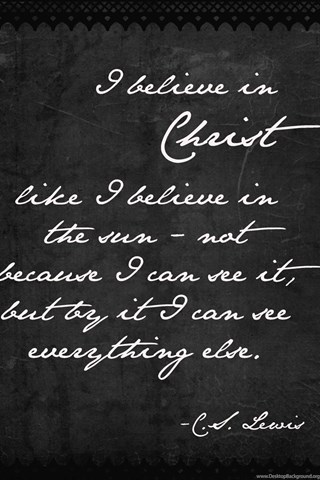 I believe in
Christ
like I believe in
the sun - not
because I can see it,
but by it I can see
everything else.
-C.S. Lewis
www.DesktopBackground.org